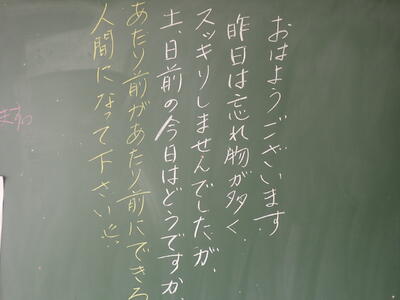 おはようございます
昨日は忘れ物が多く、
スッキリしませんでしたが、
土、日前の今日はどうですか
あたり前があたり前にできる
人間になって下さい